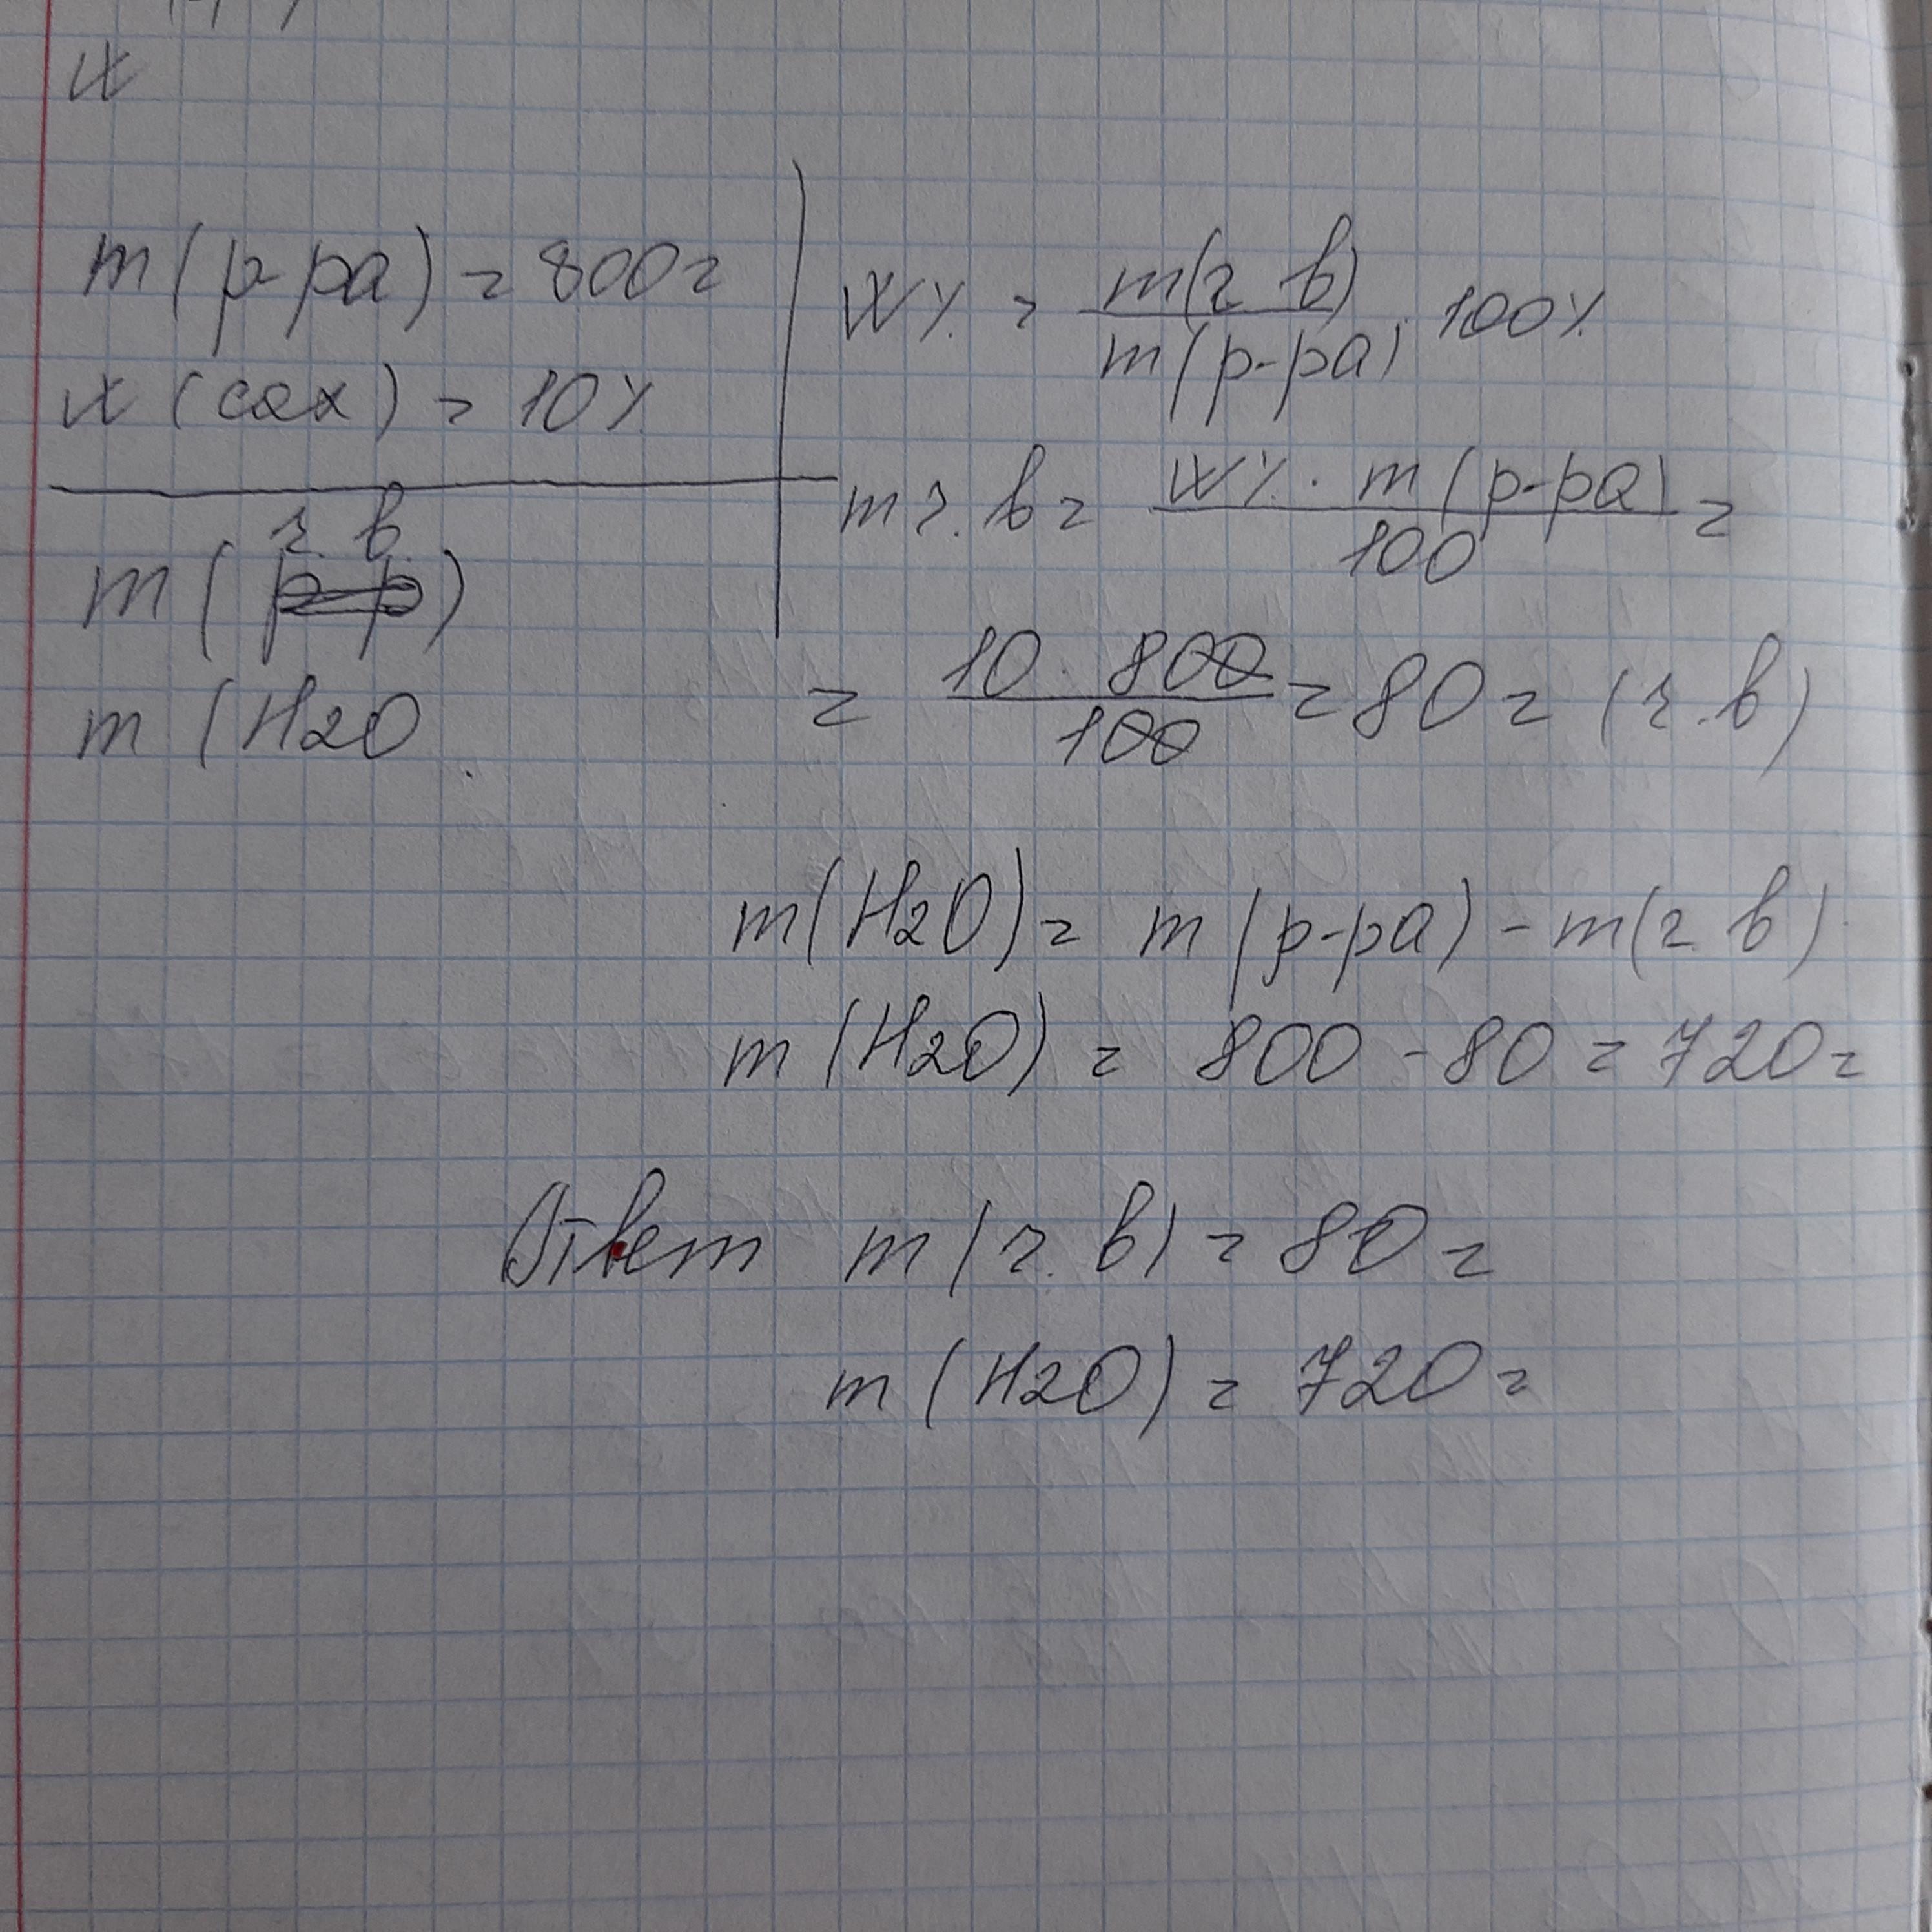 m(р-ра) = 800 г
W (сах) = 10%
m (р-р) г.в.
m (H2O
W% = m(г в) / m(р-ра) · 100%
m г. в = W% · m (р-ра) / 100 =
= 10 · 800 / 100 = 80 г (г.в)
m(H2O) = m (р-ра) - m(г в)
m (H2O) = 800 - 80 = 720 г
Ответ m (г. в) = 80 г
m (H2O) = 720 г